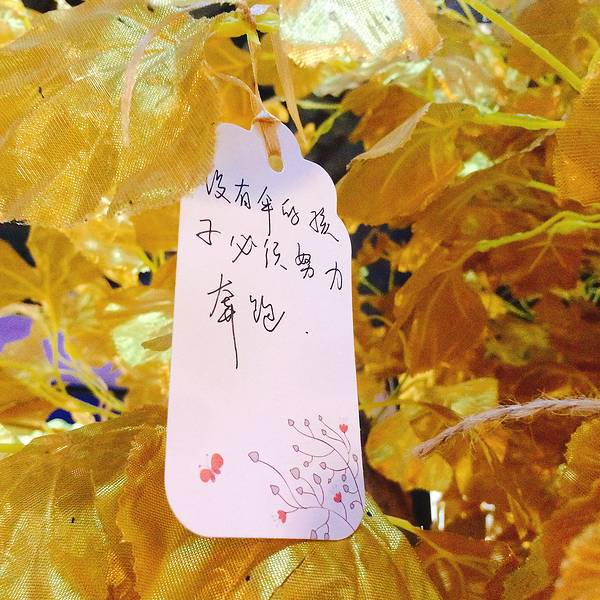 没有伞的孩
子必须努力
奔跑.